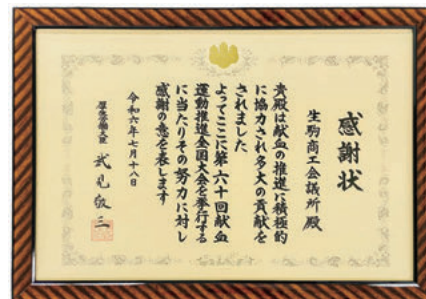 感謝状
生駒商工会議所殿
貴殿は献血の推進に積極的
に協力され多大の貢献を
されました
よってここに第六十回献血
運動推進全国大会を挙行する
に当たりその努力に対し
感謝の意を表します
令和六年七月十八日
厚生労働大臣 武見敬三